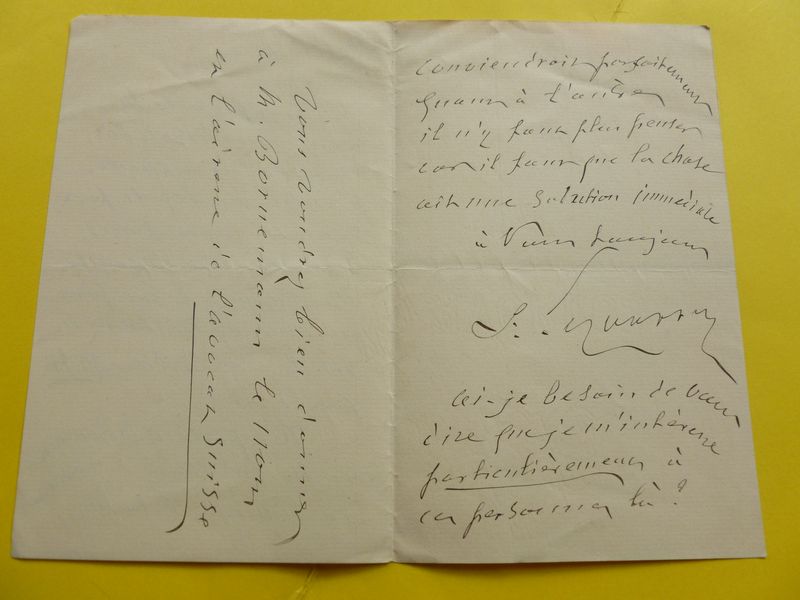 conviendrait parfaitement
Quant à l'autre
il n'y faut plus penser
car il faut que la chose
ait une Solution immédiate
à Vous toujours
ai-je besoin de vous
dire que je m'intéresse
particulièrement à
ces personnes là ?
Vous voudrez bien donner
à M. Bornemann le nom
et l'adresse de l'avocat Suisse